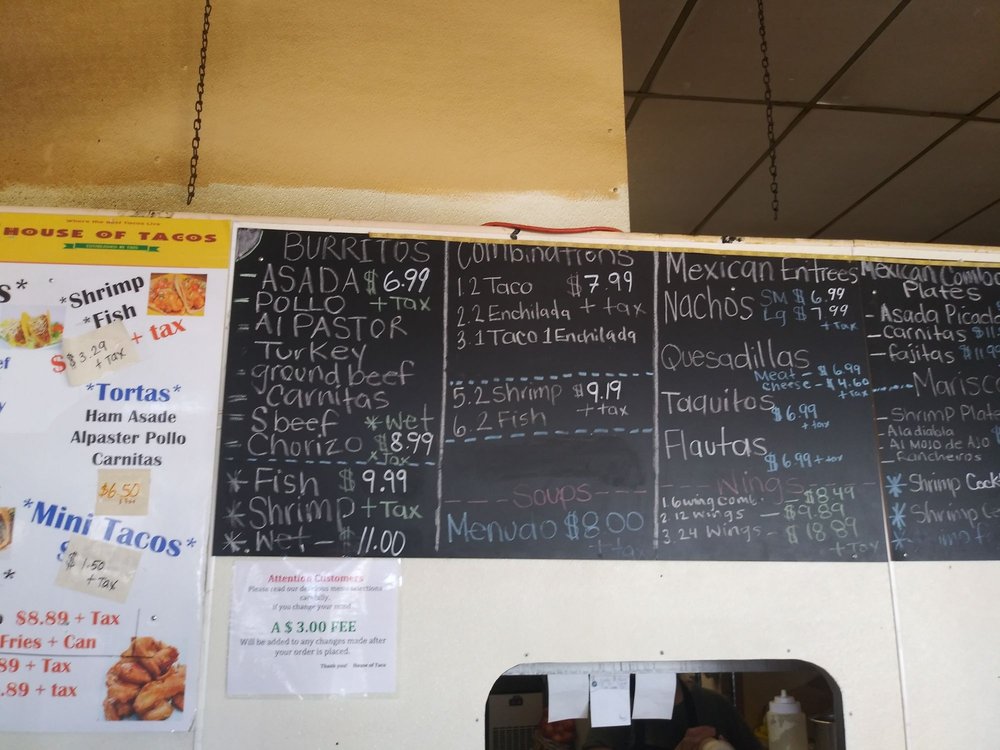 Where the Best Tacos Live
HOUSE OF TACOS
*Shrimp
*Fish
$3.29
+ Tax
+ tax
*Tortas*
Ham Asade
Alpaster Pollo
Carnitas
$6.50
*Mini Tacos*
$1.50
+ Tax
$8.89 + Tax
Fries + Can
89 + Tax
.89 + tax
BURRITOS
- ASADA $6.99
- POLLO + Tax
- Al PASTOR
- Turkey
- ground beef
- Carnitas
- Sbeef *wet
- Chorizo $8.99
+ Tax
* Fish $9.99
* Shrimp + Tax
* Wet - $11.00
Combinations
1.2 Taco $7.99
2.2 Enchilada + tax
3.1 Taco 1 Enchilada
5.2 Shrimp $9.19
6.2 Fish + tax
Soups
Menudo $8.00
+ tax
Mexican Entrees
Nachos SM $6.99
Lg $7.99
+ Tax
Quesadillas
Meat - $6.99
cheese - $4.60
+ Tax
Taquitos
$6.99
+ tax
Flautas
$6.99 + tax
Wings
1. 6 wing Comb. - $8.49
2. 12 wings - $9.89
3. 24 Wings - $18.89
+ Tax
Mexican Combo
Plates
- Asada Picad
- Carnitas $11
- fajitas $11.99
Marisc
- Shrimp Plat
- A la diabla
- Al Mojo de Ajo
- Rancheros
* Shrimp Cock
* Shrimp
Attention Customers
Please read our delicious menu selections
carefully.
if you change your mind
A $ 3.00 FEE
Will be added to any changes made after
your order is placed.
Thank you! House of Taco